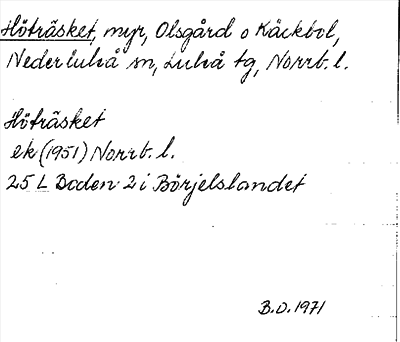 Höträsket, myr, Olsgård o Kåckbol,
Nederluleå sn, Luleå tg, Norrb. l.
Höträsket
ek (1951) Norrb. l.
25 L Boden 2 i Börjelslandet
B.D. 1971